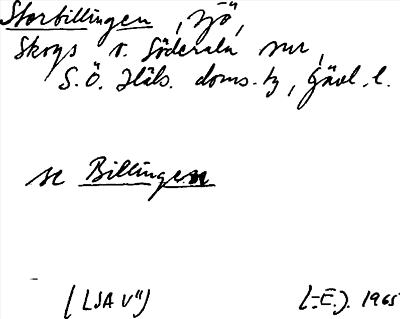 Storbillingen, sjö,
Skogs o. Söderala snr,
S.Ö. Häls. doms. tg, Gävl. l.
se Billingen
(LSA V") (-E.). 1965